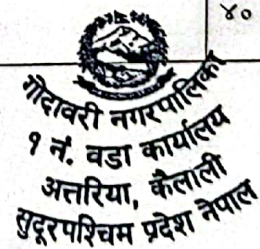 ४०
गोदावरी नगरपालिका
१ नं. वडा कार्यालय
अत्तरिया, कैलाली
सुदूरपश्चिम प्रदेश नेपाल